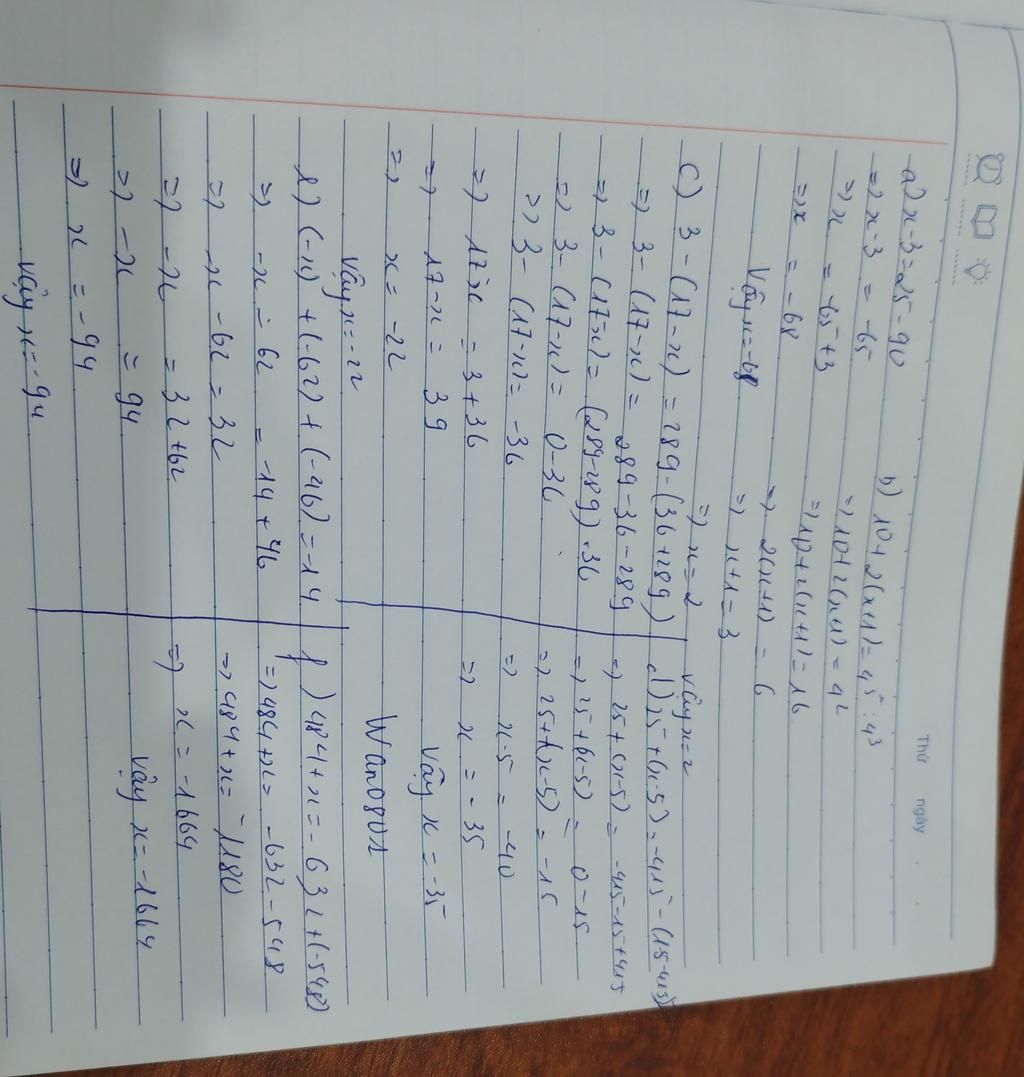 Thứ ngày
a) x-3=25-90
=> x-3 = -65
=> x = -65+3
=> x = -68
Vậy x=-68
b) 10+2(x+1)=4⁵:4³
=> 10+2(x+1)=4²
=> 10+2(x+1)=16
=> 2(x+1) = 6
=> x+1=3
=> x=2
Vậy x=2
c) 3-(17-x)=289-(36+289)
=> 3-(17-x)= 289-36-289
=> 3-(17-x)= (289-289)-36
=> 3-(17-x)= 0-36
=> 3-(17-x)= -36
=> 17-x = 3+36
=> 17-x = 39
=> x=-22
Vậy x=-22
d) 25+(x-5)=-415-(15-415)
=> 25+(x-5)= -415-15+415
=> 25+(x-5)= 0-15
=> 25+(x-5)=-15
=> x-5 = -40
=> x = -35
Vậy x=-35
Wan0801
e) (-x)+(-62)+(-46)=-14
=> -x-62 = -14+46
=> -x-62=32
=> -x = 32+62
=> -x = 94
=> x=-94
Vậy x=-94
f) 484+x=-632+(-548)
=> 484+x= -632-548
=> 484+x=-1180
=> x=-1664
Vậy x=-1664